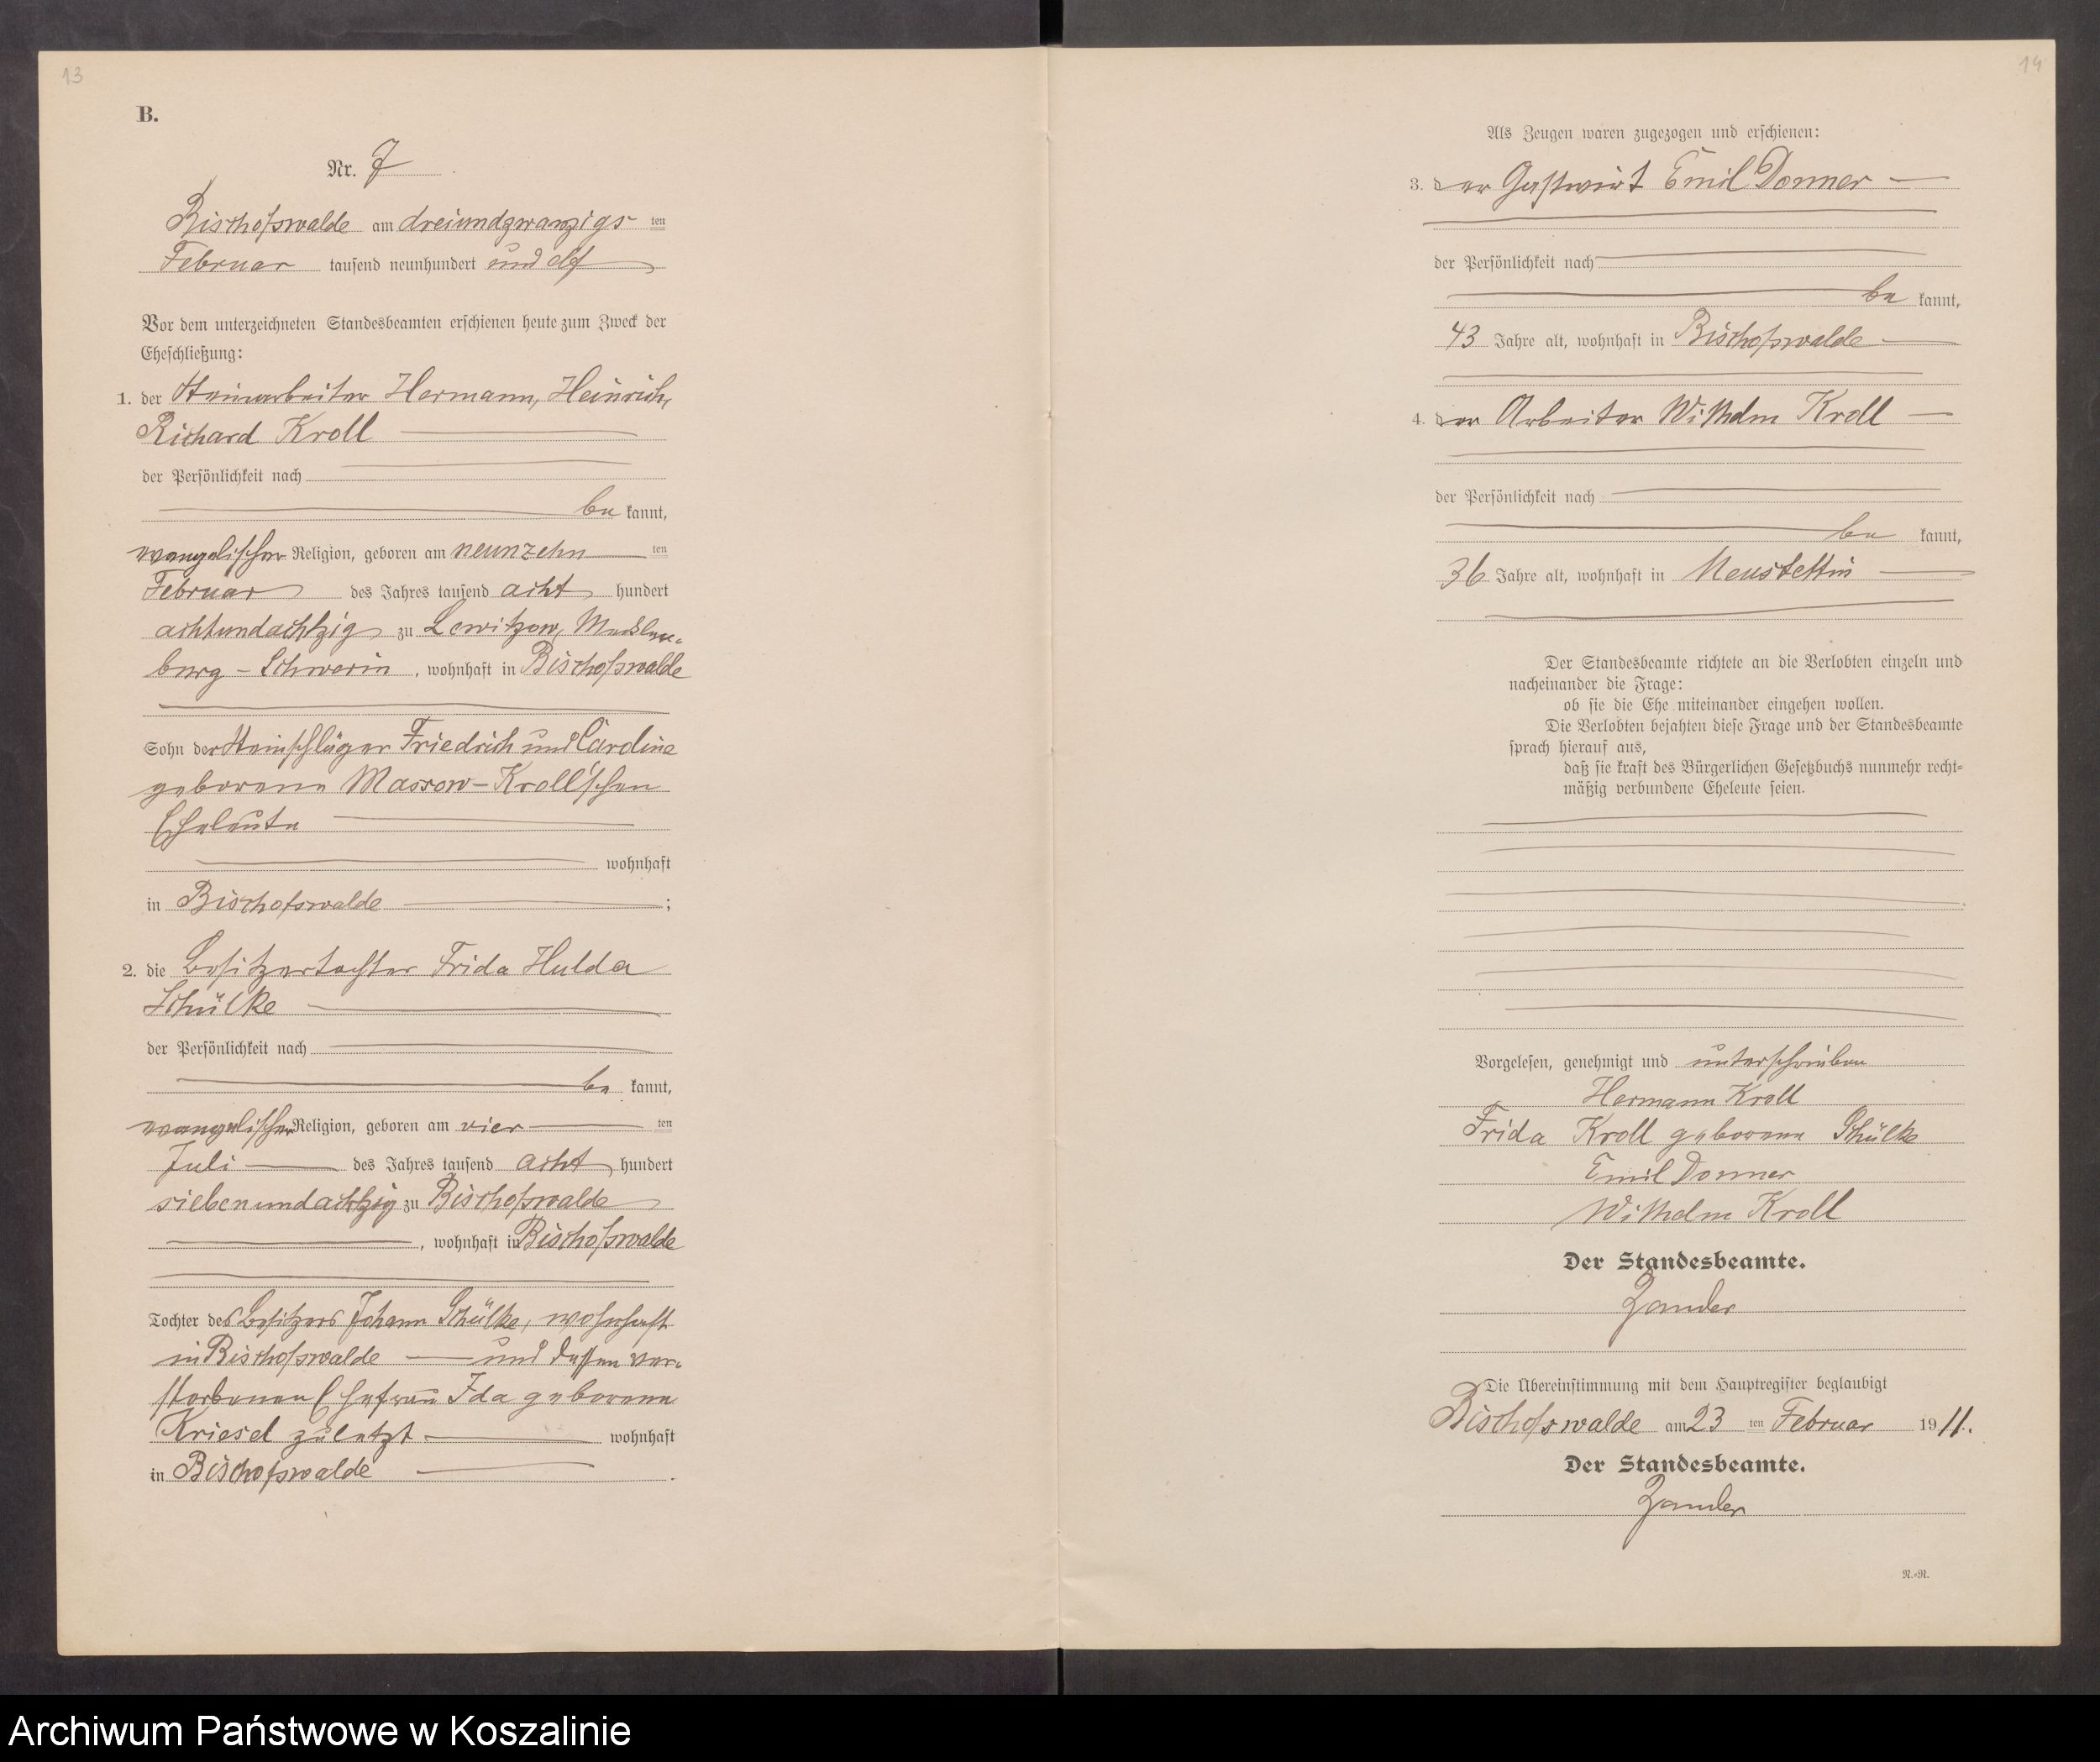 13
B.
Nr. 7
Bischofswalde am dreiundzwanzigsten
Februar tausend neunhundert und elf
Vor dem unterzeichneten Standesbeamten erschienen heute zum Zweck der
Eheschließung:
1. der Steinarbeiter Hermann, Heinrich,
Richard Kroll
der Persönlichkeit nach
be kannt,
evangelischer Religion, geboren am neunzehn ten
Februar des Jahres tausend acht hundert
achtundachtzig zu Lewitzow, Mecklen-
burg - Schwerin, wohnhaft in Bischofswalde
Sohn der Steinschläger Friedrich und Caroline
geborene Massow-Kroll'schen
Eheleute
wohnhaft
in Bischofswalde ;
2. die Besitzertochter Frida Hulda
Schülke
der Persönlichkeit nach
be kannt,
evangelischer Religion, geboren am vier ten
Juli des Jahres tausend acht hundert
siebenundachtzig zu Bischofswalde
, wohnhaft in Bischofswalde
Tochter des Besitzers Johann Schülke, wohnhaft
in Bischofswalde und dessen ver-
storbenen Ehefrau Ida geborene
Kriesel zuletzt wohnhaft
in Bischofswalde .
14
Als Zeugen waren zugezogen und erschienen:
3. der Gastwirt Emil Donner
der Persönlichkeit nach
be kannt,
43 Jahre alt, wohnhaft in Bischofswalde
4. der Arbeiter Wilhelm Kroll
der Persönlichkeit nach
be kannt,
36 Jahre alt, wohnhaft in Neustettin
Der Standesbeamte richtete an die Verlobten einzeln und
nacheinander die Frage:
ob sie die Ehe miteinander eingehen wollen.
Die Verlobten bejahten diese Frage und der Standesbeamte
sprach hierauf aus,
daß sie kraft des Bürgerlichen Gesetzbuchs nunmehr recht-
mäßig verbundene Eheleute seien.
Vorgelesen, genehmigt und unterschrieben
Hermann Kroll
Frida Kroll geborene Schülke
Emil Donner
Wilhelm Kroll
Der Standesbeamte.
Zander
Die Übereinstimmung mit dem Hauptregister beglaubigt
Bischofswalde am 23 ten Februar 1911.
Der Standesbeamte.
Zander
R.-R.
Archiwum Państwowe w Koszalinie